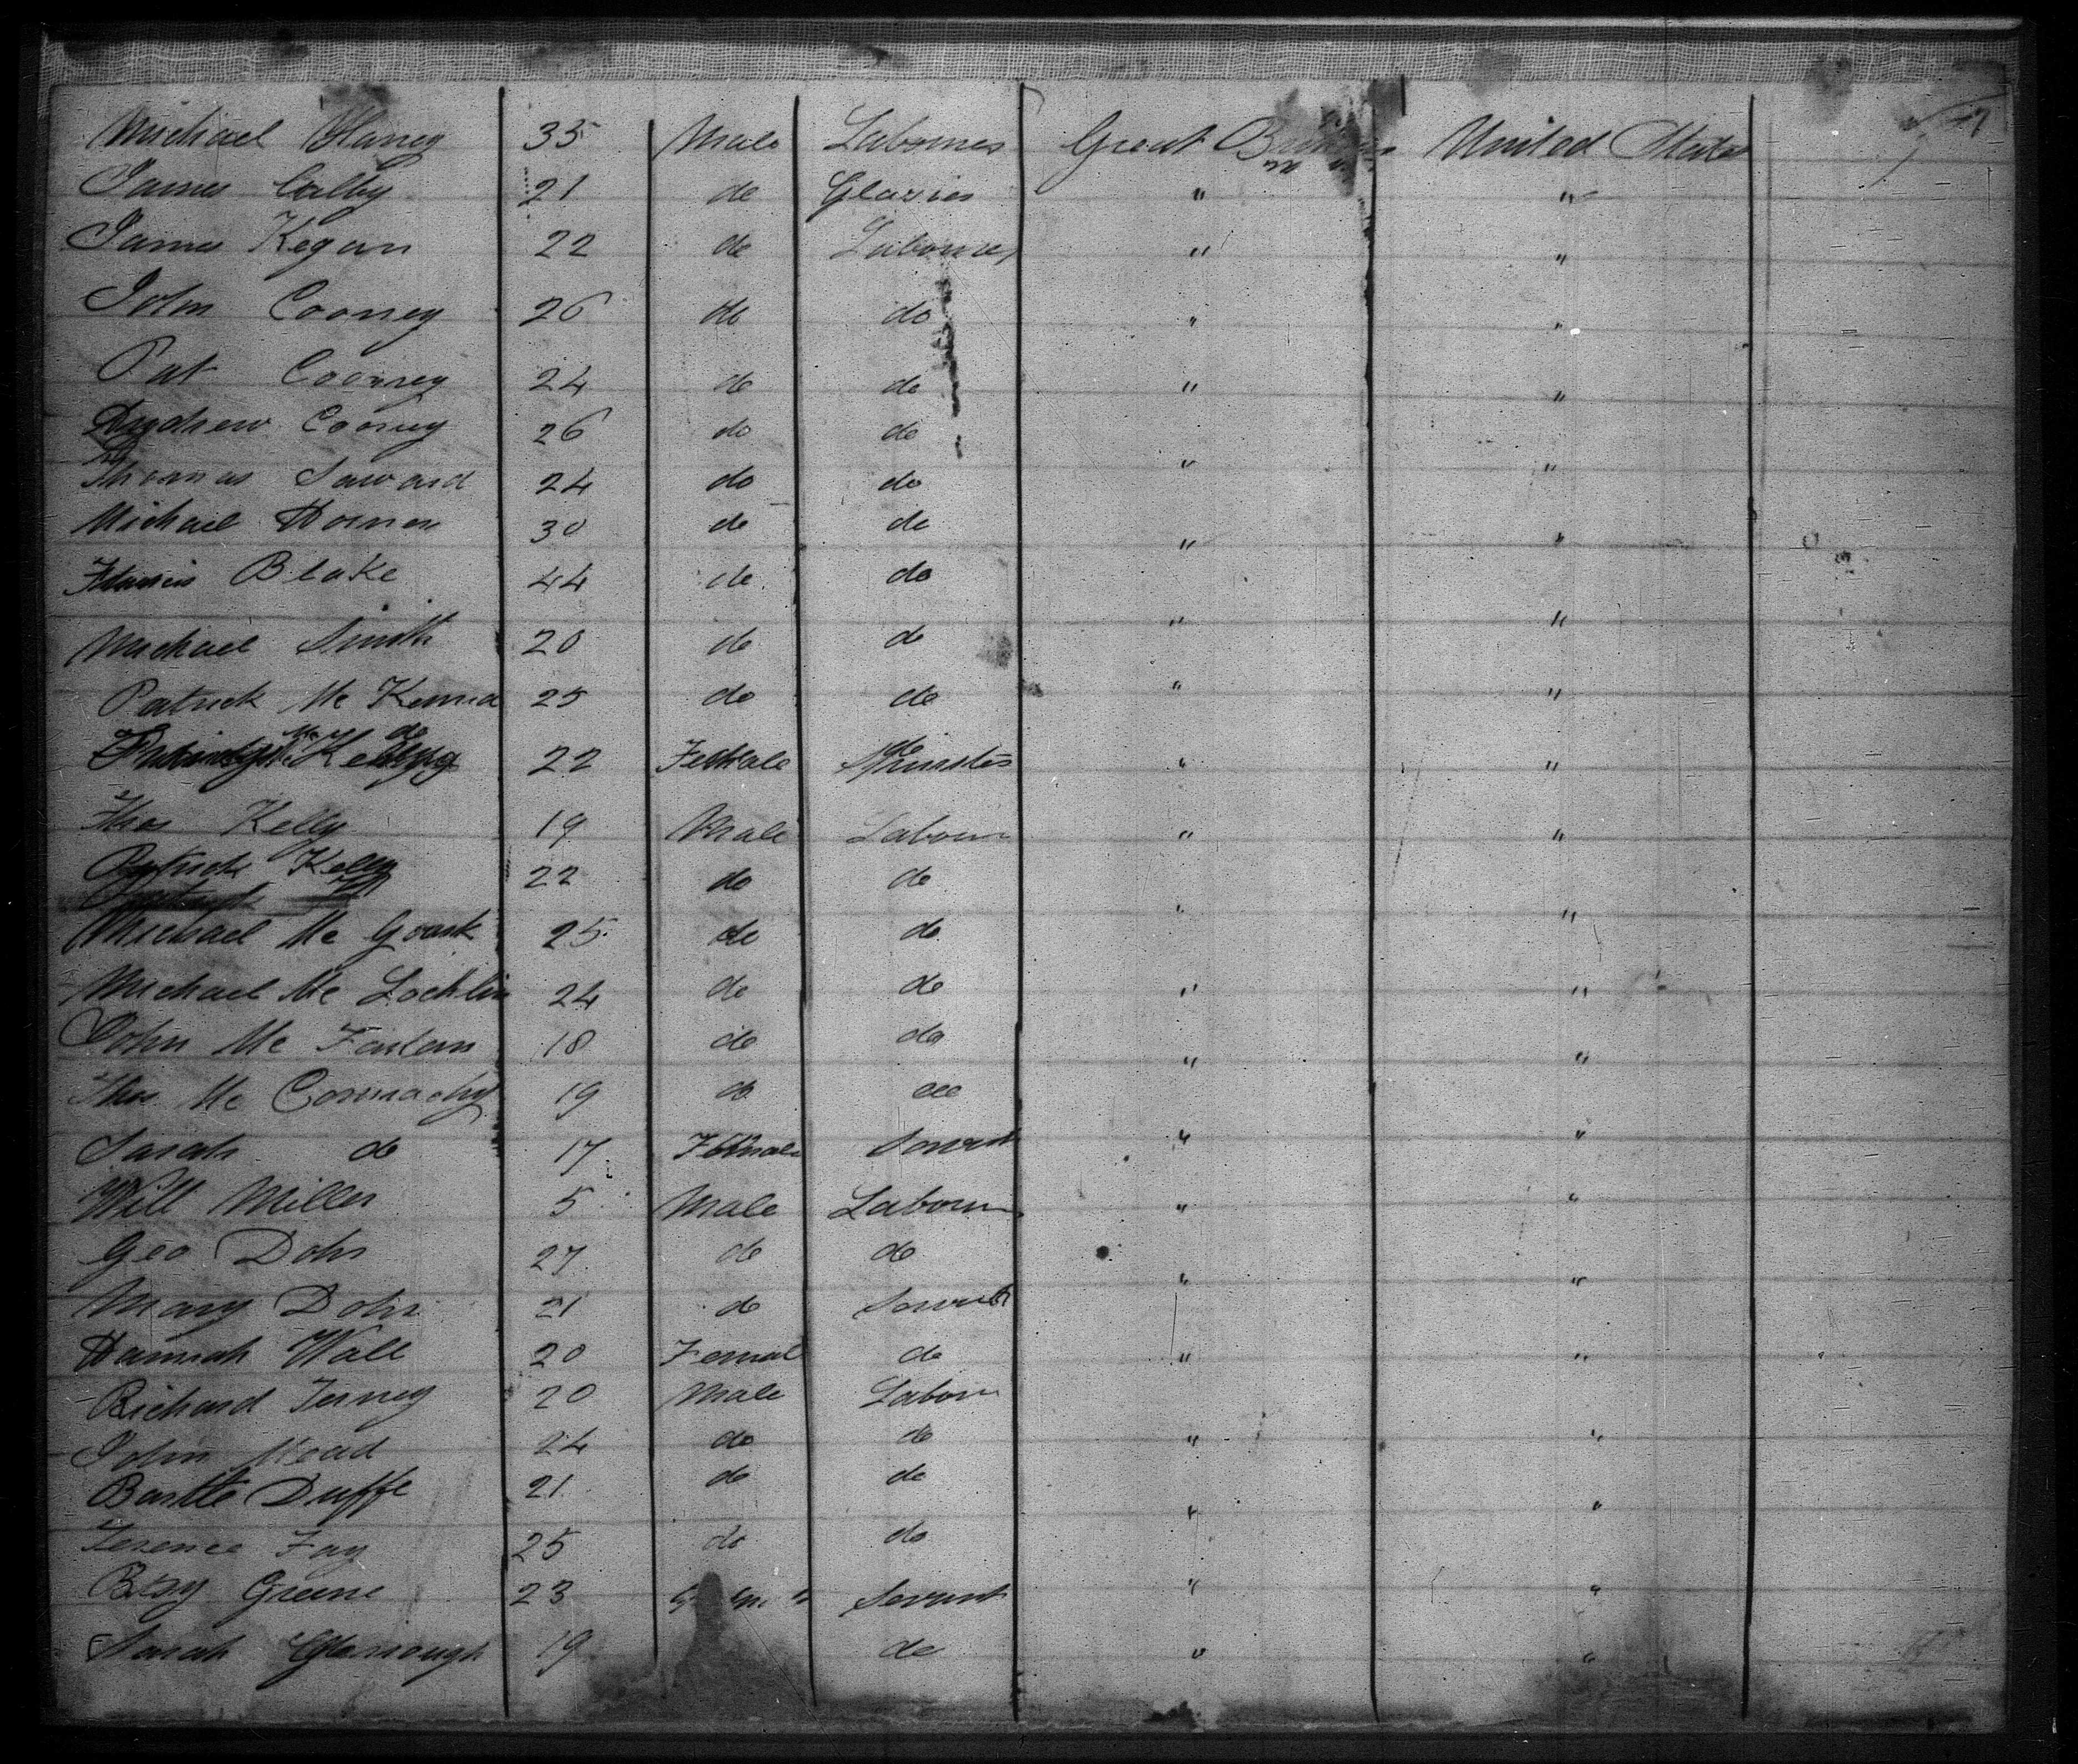 Michael Haney 35 Male Labourer Great Britain United States
James Calby 21 do Glazier " "
James Kegan 22 do Labourer " "
John Cooney 26 do do " "
Pat Cooney 24 do do " "
Andrew Cooney 26 do do " "
Thomas Saward 24 do do " "
Michael 30 do do " "
Francis Blake 44 do do " "
Michael Smith 20 do do " "
Patrick Mc Kenna 25 do do " "
22 Female Spinster " "
Thos Kelly 19 Male Labour " "
Patrick Kelly 22 do do " "
Michael Mc 25 do do " "
Michael Mc Lochlin 24 do do " "
John Mc Farlan 18 do do " "
Thos Mc 19 do do " "
Sarah do 17 Female Servant " "
Will Miller 5 Male Labour
Geo Dohr 27 do do " "
Mary Dohr 21 do Servant
Hannah Wall 20 Female do " "
Richard 20 Male Labour
John Mead 24 do do " "
Bartle Duffe 21 do do " "
Terence Fay 25 do do
Betsy Greene 23 Servant " "
Sarah 19 do " "